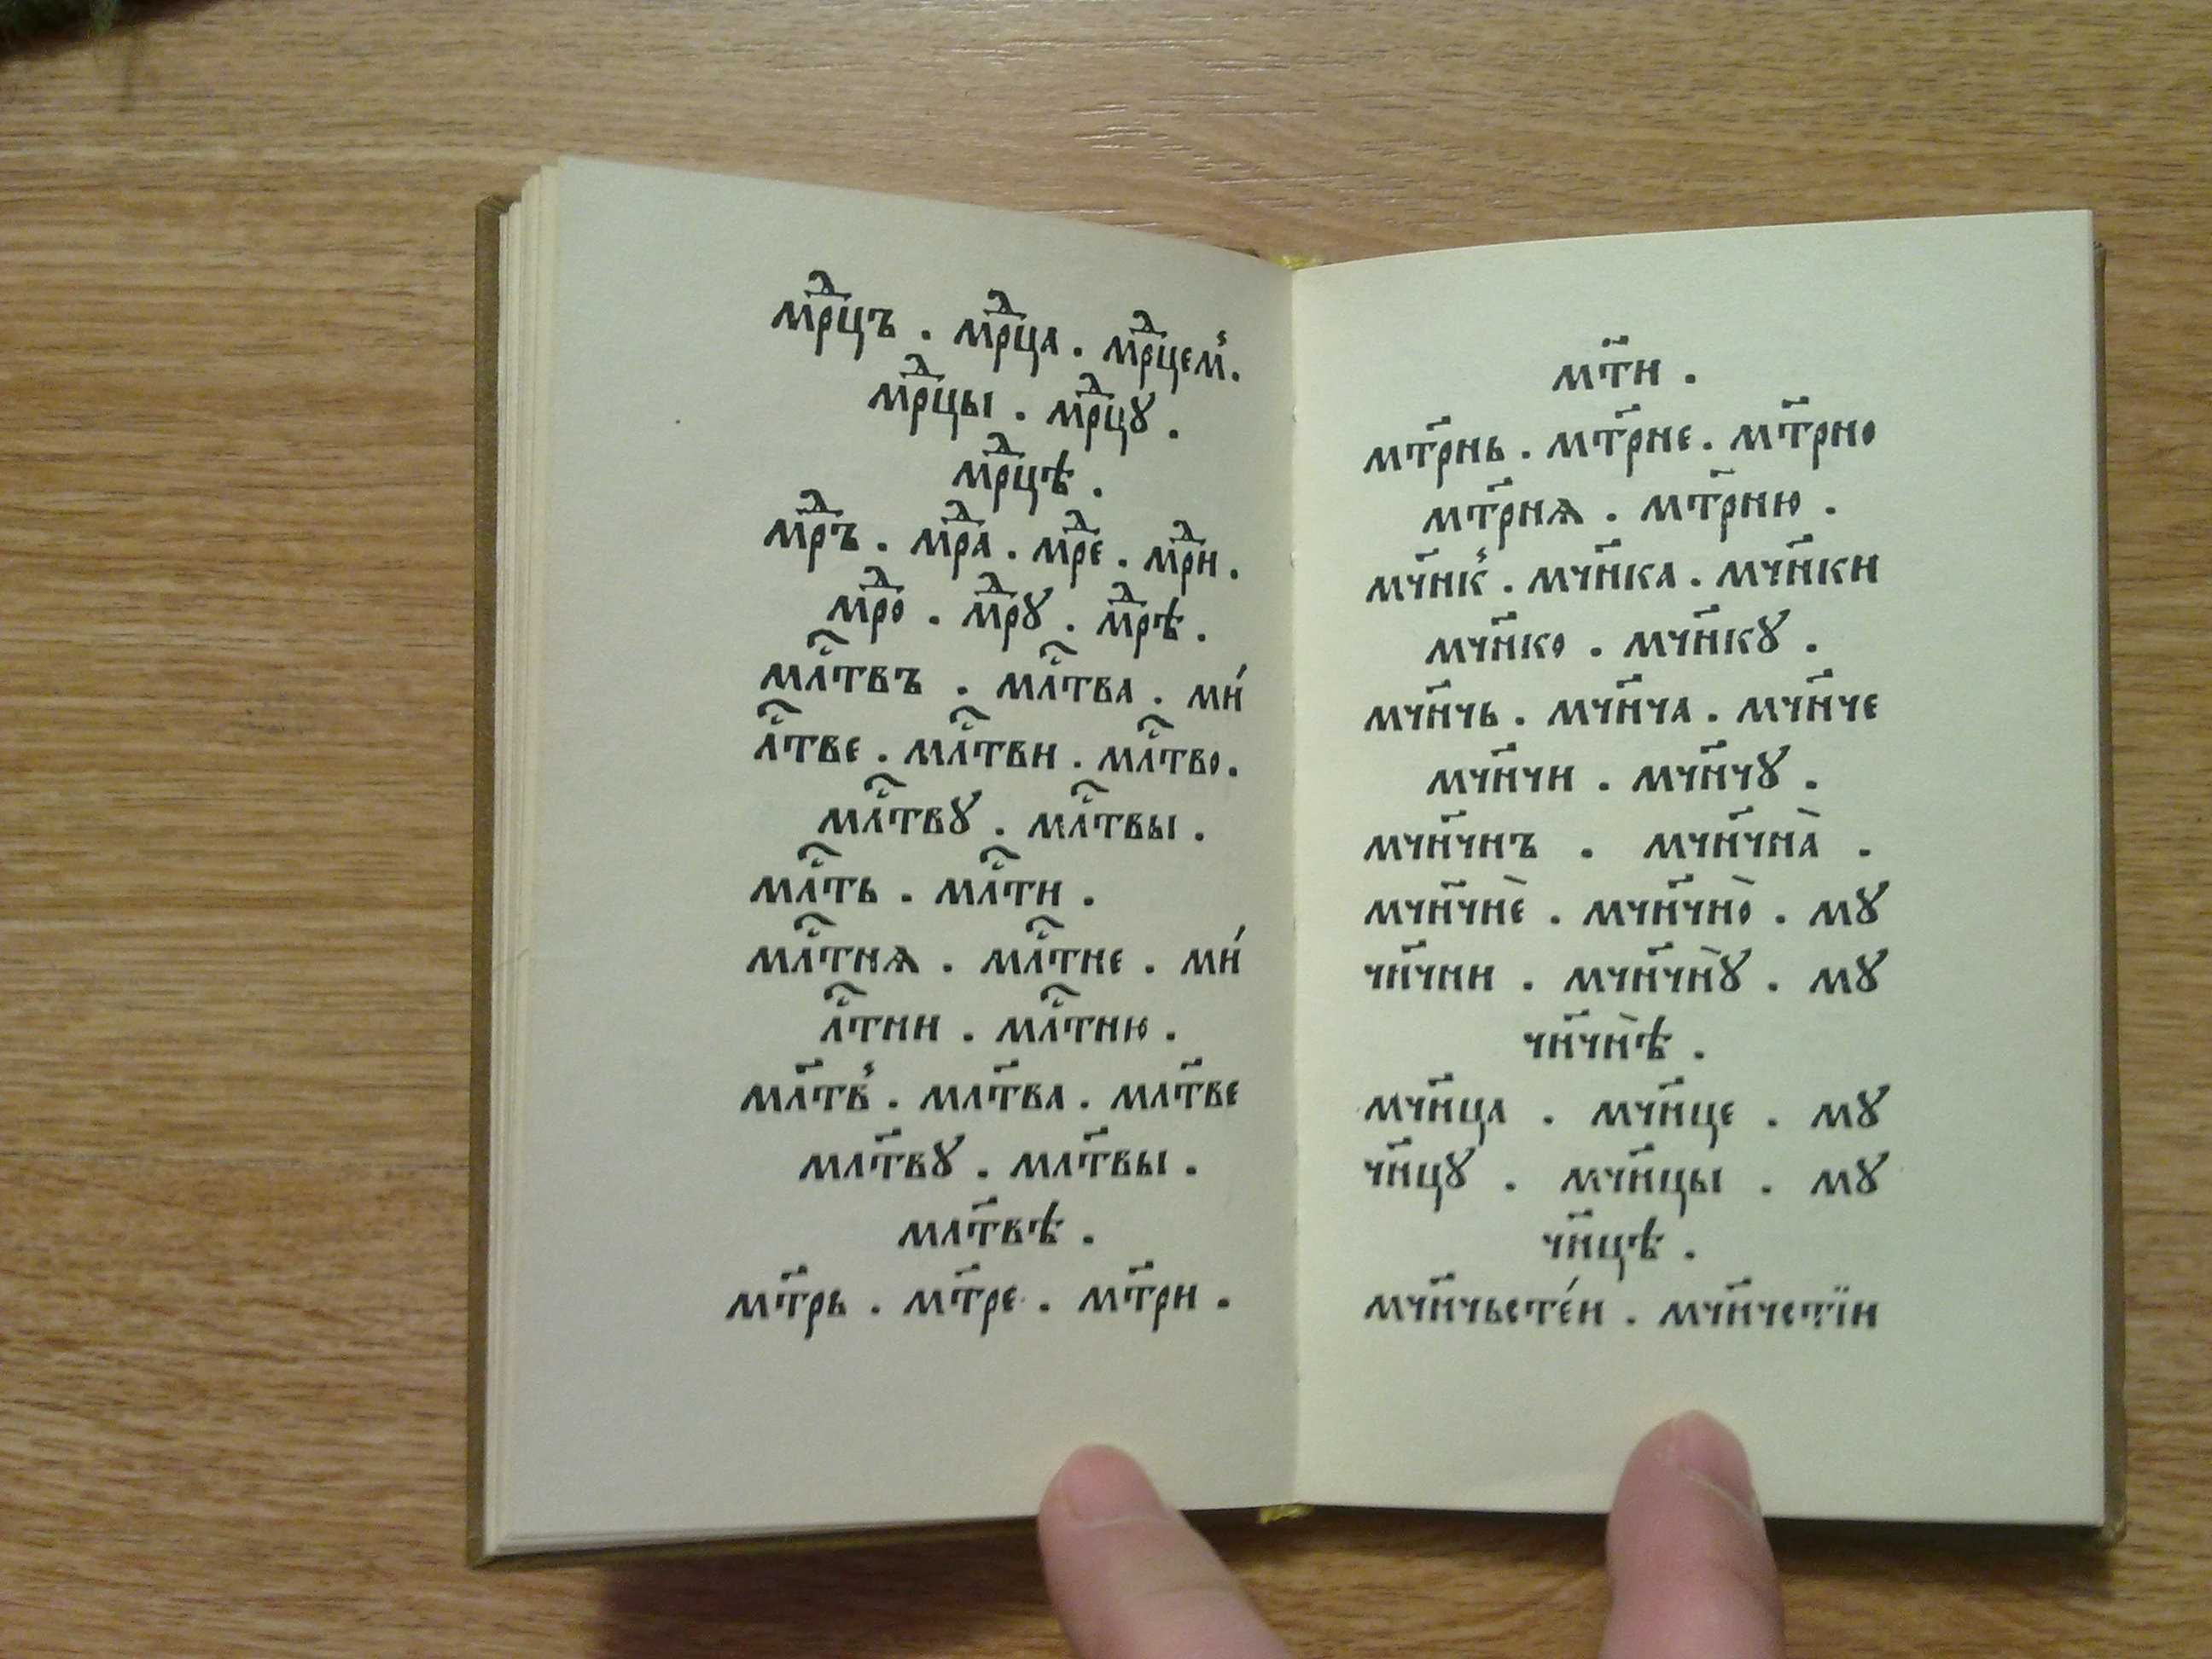 мⷣрцъ . мⷣрца . мⷣрцем꙽.
мⷣрцы . мⷣрцꙋ .
мⷣрцѣ .
мⷣръ . мⷣра . мⷣре . мⷣри .
мⷣро . мⷣрꙋ . мⷣрѣ .
млⷭ҇твъ . млⷭ҇тва . ми́
лⷭ҇тве . млⷭ҇тви . млⷭ҇тво.
млⷭ҇твꙋ . млⷭ҇твы .
млⷭ҇ть . млⷭ҇ти .
млⷭ҇тнѧ . млⷭ҇тне . ми́
лⷭ҇тни . млⷭ҇тню .
мл҃тв꙽ . млт҃ва . млт҃ве
млт҃вꙋ . млт҃вы .
млт҃вѣ .
мт҃рь . мт҃ре . мт҃ри .
мт҃и .
мт҃рнь . мт҃рне . мт҃рно
мт҃рнѧ . мт҃рню .
мч҃нк꙽ . мч҃нка . мч҃нки
мч҃нко . мч҃нкꙋ .
мч҃нчь . мч҃нча . мч҃нче
мч҃нчи . мч҃нчꙋ .
мч҃нчнъ . мч҃нчна̀ .
мч҃нчнѐ . мч҃нчно̀ . мꙋ
чн҃чни . мч҃нчнꙋ̀ . мꙋ
чн҃чнѣ̀ .
мч҃нца . мч҃нце . мꙋ
чн҃цꙋ . мч҃нцы . мꙋ
чн҃цѣ .
мч҃нчьсте́и . мч҃нчстїи